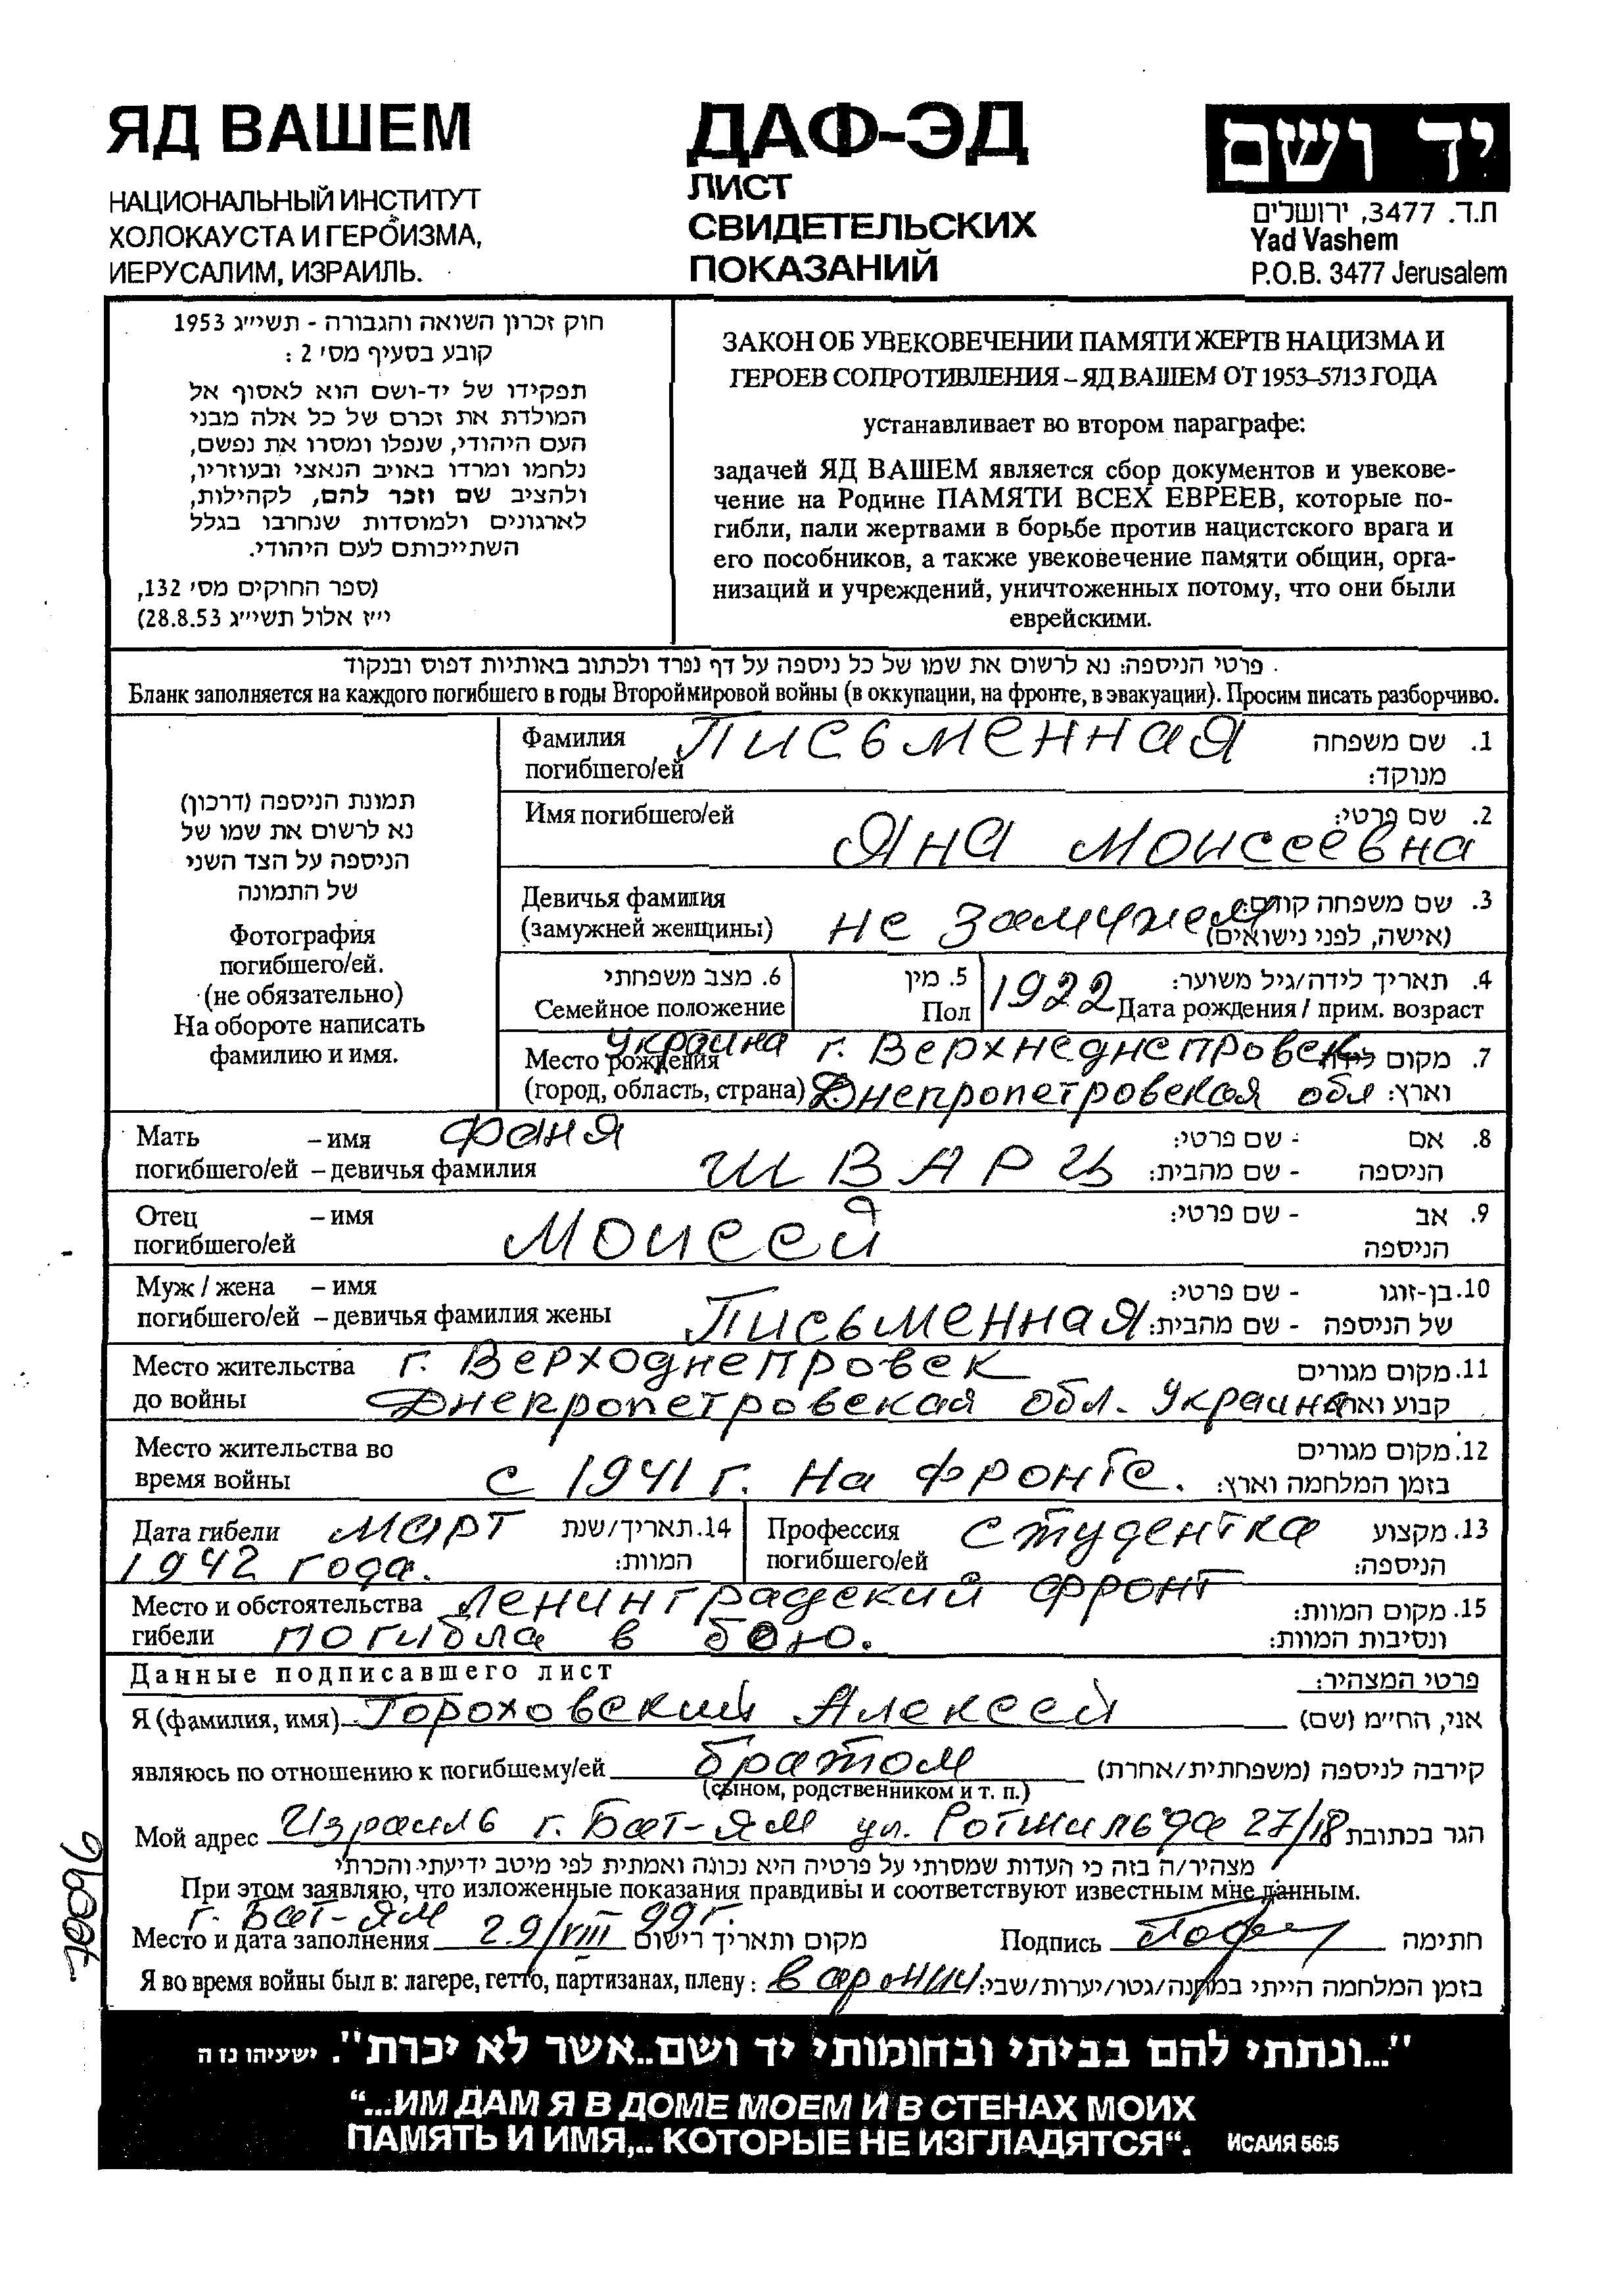 ЯД ВАШЕМ
НАЦИОНАЛЬНЫЙ ИНСТИТУТ
ХОЛОКАУСТА И ГЕРОИЗМА,
ИЕРУСАЛИМ, ИЗРАИЛЬ.
ДАФ-ЭД
ЛИСТ
СВИДЕТЕЛЬСКИХ
ПОКАЗАНИЙ
יד ושם
ת.ד. 3477, ירושלים
Yad Vashem
P.O.B. 3477 Jerusalem
חוק זכרון השואה והגבורה - תשי״ג 1953
קובע בסעיף מס׳ 2 :
תפקידו של יד-ושם הוא לאסוף אל
המולדת את זכרם של כל אלה מבני
העם היהודי, שנפלו ומסרו את נפשם,
נלחמו ומרדו באויב הנאצי ובעוזריו,
ולהציב שם וזכר להם, לקהילות,
לארגונים ולמוסדות שנחרבו בגלל
השתייכותם לעם היהודי.
(ספר החוקים מס׳ 132,
י״ז אלול תשי״ג 28.8.53)
ЗАКОН ОБ УВЕКОВЕЧЕНИИ ПАМЯТИ ЖЕРТВ НАЦИЗМА И
ГЕРОЕВ СОПРОТИВЛЕНИЯ – ЯД ВАШЕМ ОТ 1953–5713 ГОДА
устанавливает во втором параграфе:
задачей ЯД ВАШЕМ является сбор документов и увекове-
чение на Родине ПАМЯТИ ВСЕХ ЕВРЕЕВ, которые по-
гибли, пали жертвами в борьбе против нацистского врага и
его пособников, а также увековечение памяти общин, орга-
низаций и учреждений, уничтоженных потому, что они были
еврейскими.
פרטי הניספה: נא לרשום את שמו של כל ניספה על דף נפרד ולכתוב באותיות דפוס ובנקוד
Бланк заполняется на каждого погибшего в годы Второй мировой войны (в оккупации, на фронте, в эвакуации). Просим писать разборчиво.
תמונת הניספה (דרכון)
נא לרשום את שמו של
הניספה על הצד השני
של התמונה
Фотография
погибшего/ей.
(не обязательно)
На обороте написать
фамилию и имя.
Фамилия Письменная שם משפחה 1.
погибшего/ей מנוקד:
Имя погибшего/ей שם פרטי: 2.
Яна Моисеевна
Девичья фамилия שם משפחה קודם: 3.
(замужней женщины) не замужем (אישה, לפני נישואים)
6. מצב משפחתי 5. מין 1922 תאריך לידה/גיל משוער: 4.
Семейное положение Пол Дата рождения / прим. возраст
Украина г. Верхнеднепровск
Место рождения מקום לידה 7.
(город, область, страна) Днепропетровская обл וארץ:
Мать – имя Фаня - שם פרטי: אם 8.
погибшего/ей – девичья фамилия ШВАРЦ - שם מהבית: הניספה
Отец – имя Моисей - שם פרטי: אב 9.
погибшего/ей הניספה
Муж / жена – имя - שם פרטי: בן-זוגו 10.
погибшего/ей – девичья фамилия жены Письменная - שם מהבית: של הניספה
Место жительства г. Верходнепровск מקום מגורים 11.
до войны Днекропетровская обл. Украина קבוע וארץ
Место жительства во מקום מגורים 12.
время войны с 1941 г. На фронте. בזמן המלחמה וארץ:
Дата гибели март 14. תאריך/שנת Профессия студентка מקצוע 13.
1942 года. המוות: погибшего/ей הניספה:
Место и обстоятельства Ленинградский фронт מקום המוות: 15.
гибели погибла в бою. ונסיבות המוות:
Данные подписавшего лист פרטי המצהיר:
Я (фамилия, имя) Гороховский Алексей אני, הח״מ (שם)
являюсь по отношению к погибшему/ей братом קירבה לניספה (משפחתית/אחרת)
(сыном, родственником и т. п.)
Мой адрес Израиль г. Бат-Ям ул. Ротшильда 27/18 הגר בכתובת
מצהיר/ה בזה כי העדות שמסרתי על פרטיה היא נכונה ואמתית לפי מיטב ידיעתי והכרתי
При этом заявляю, что изложенные показания правдивы и соответствуют известным мне данным.
г. Бат-Ям
Место и дата заполнения 29/VIII 99 г. מקום ותאריך רישום Подпись חתימה
Я во время войны был в: лагере, гетто, партизанах, плену: в армии בזמן המלחמה הייתי במחנה/גטו/יערות/שבי:
70096
"...ונתתי להם בביתי ובחומותי יד ושם..אשר לא יכרת". ישעיהו נו ה
“...ИМ ДАМ Я В ДОМЕ МОЕМ И В СТЕНАХ МОИХ
ПАМЯТЬ И ИМЯ,.. КОТОРЫЕ НЕ ИЗГЛАДЯТСЯ“. ИСАИЯ 56:5